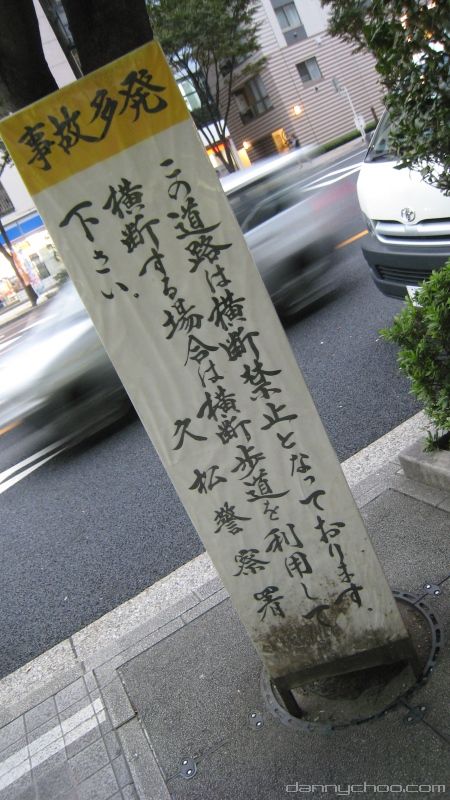 事故多発
この道路は横断禁止となっております。
横断する場合は横断歩道を利用して
下さい。
久松警察署
dannychoo.com